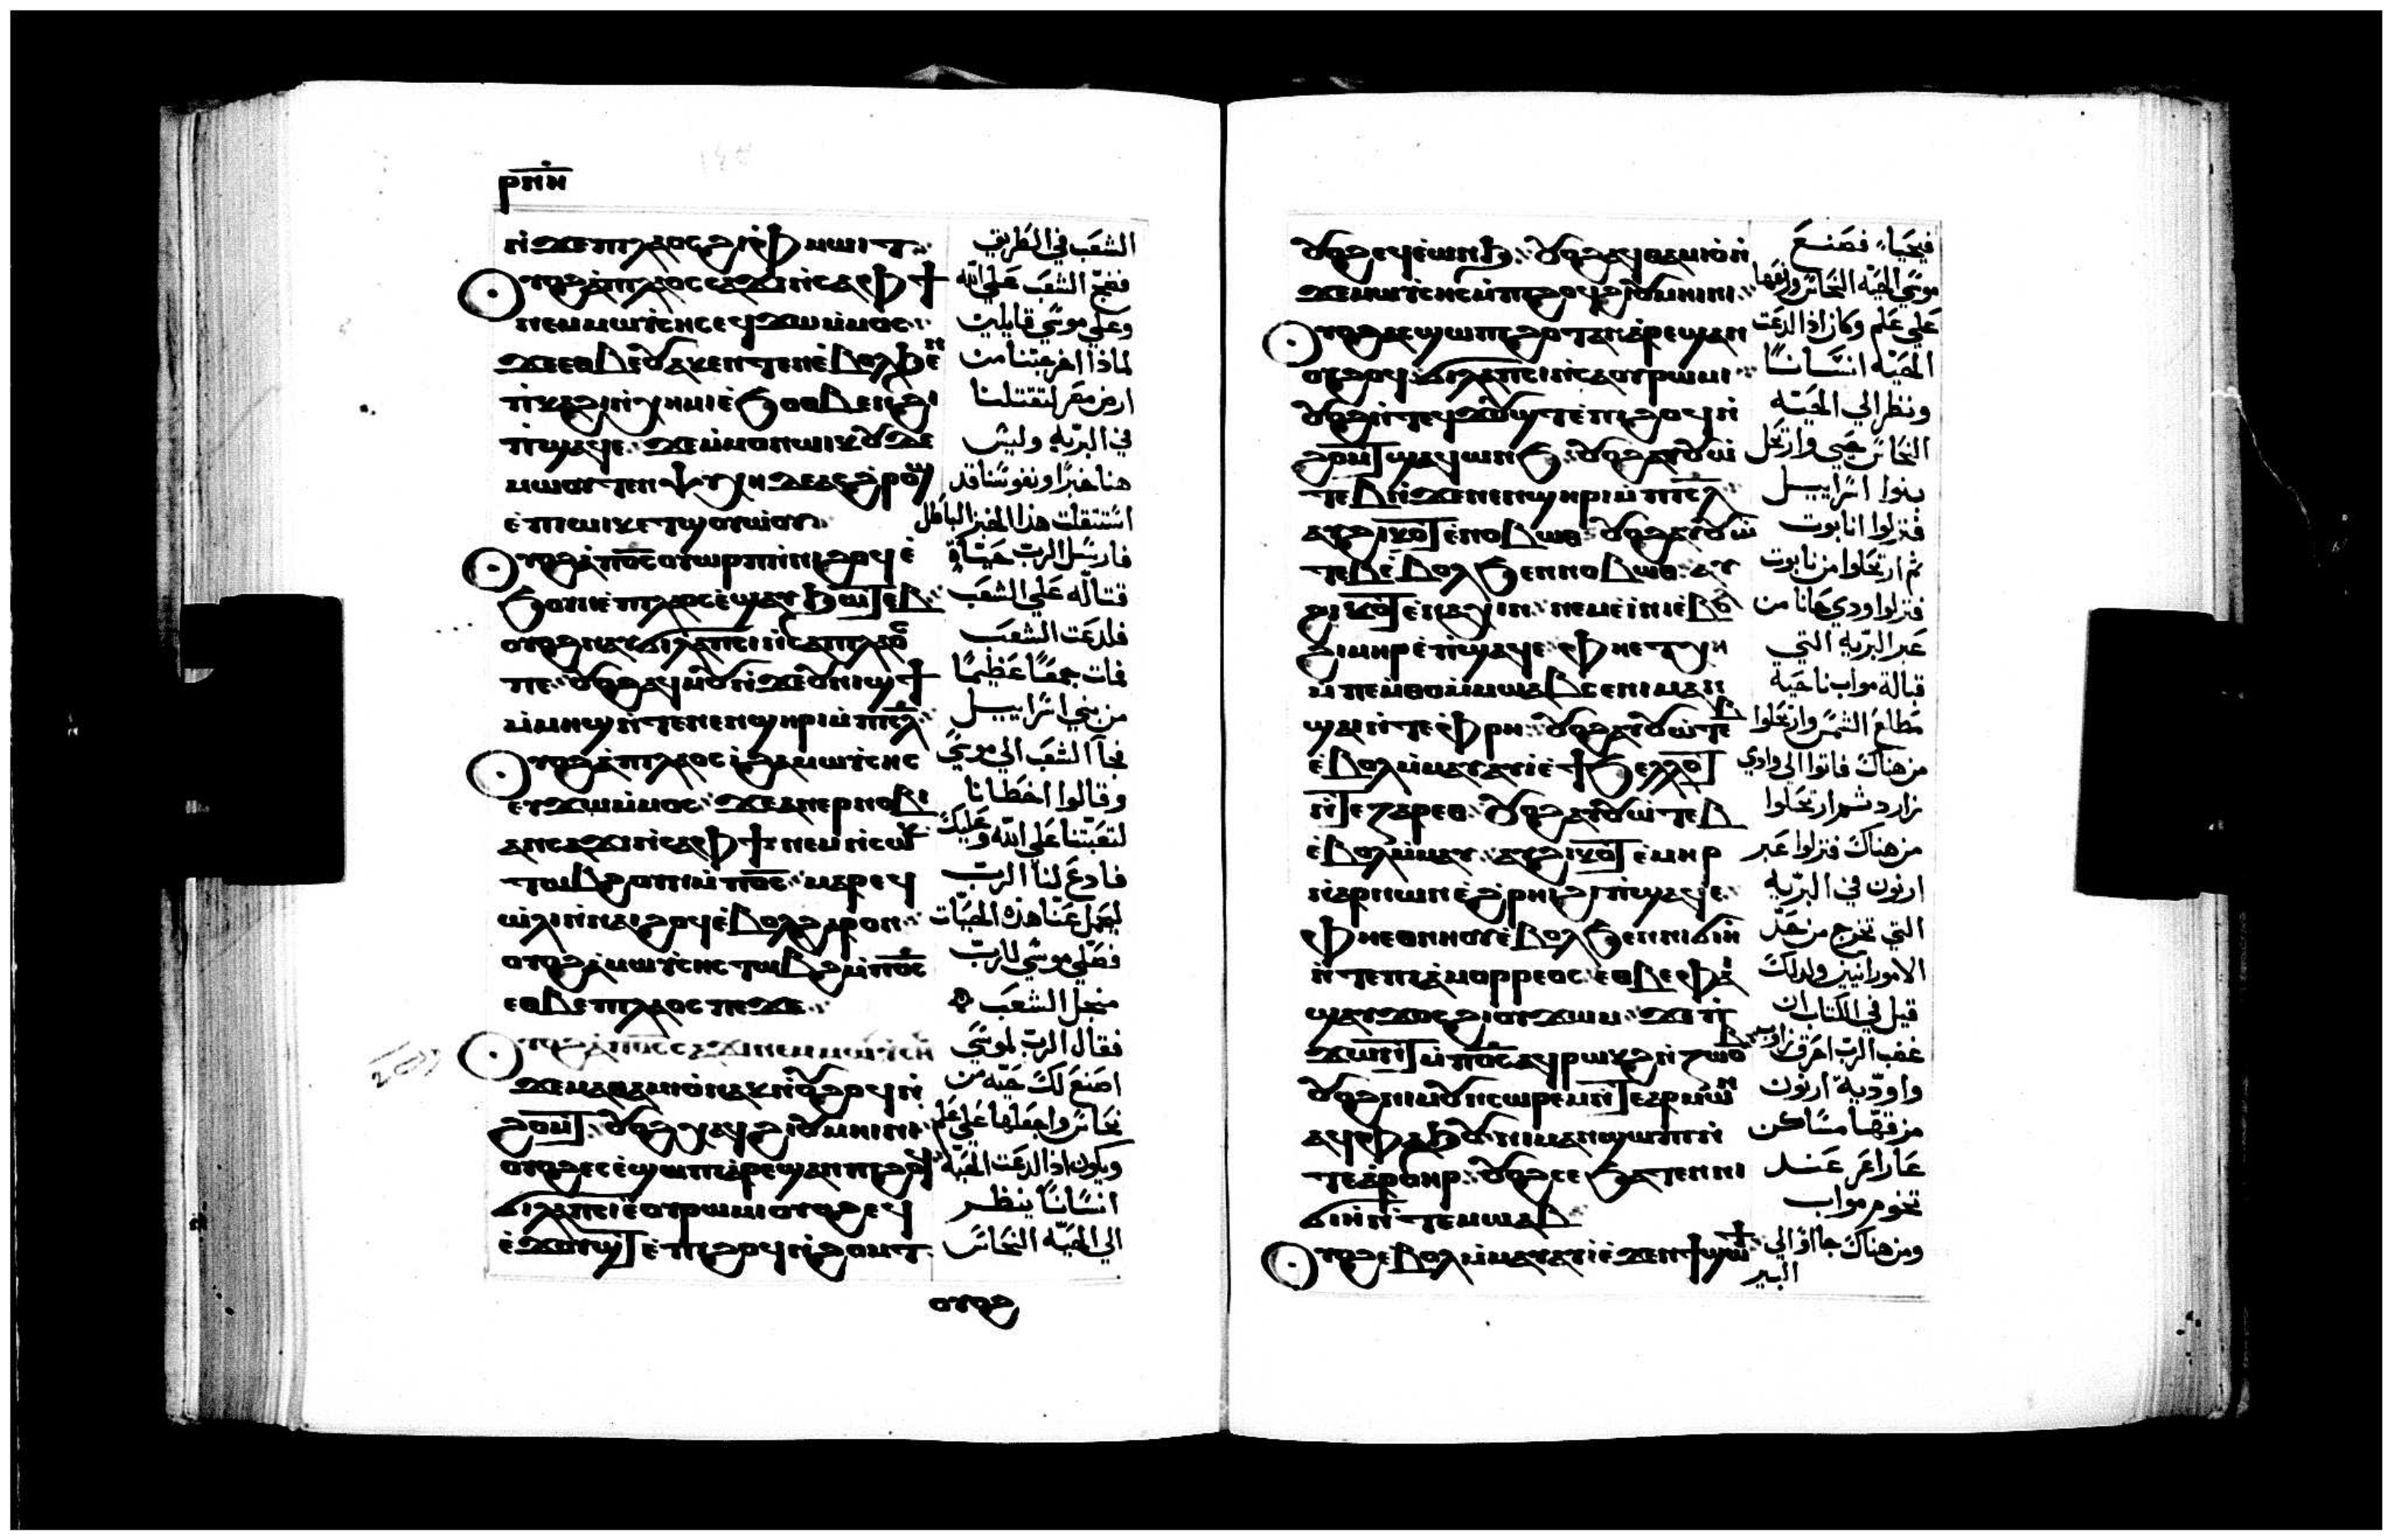 ⲣⲡⲏ
ⲛ̀ϫⲉⲡⲓⲗⲁⲟⲥ ϩⲓⲫ̀ⲙⲱⲓⲧ
ⲟⲩⲟϩ ⲁ̀ⲡⲓⲗⲁⲟⲥ ⲥⲁϫⲓ ⲛ̀ⲥⲁⲫϯ
ⲛⲉⲙⲙⲱⲩ̀ⲥⲏⲥ ⲉϥϫⲱⲙ̀ⲙⲟⲥ
ϫⲉⲉⲑⲃⲉⲟⲩ ⲁⲕⲉⲛⲧⲉⲛ ⲉ̀ⲃⲟⲗϧⲉⲛ
ⲡ̀ⲕⲁϩⲓ ⲛ̀ⲭⲏⲙⲓ ⲉ̀ϧⲟⲑⲃⲉⲛ ϩⲓ
ⲡ̀ϣⲁϥⲉ ϫⲉⲙ̀ⲙⲟⲛ ⲱⲓⲕ ⲟⲩⲇⲉ
ⲙⲱⲟⲩ ⲧⲉⲛⲯⲩⲭⲏ ⲇⲉ ⲁⲥϩ̀ⲣⲟϣ
ⲉ̀ⲡⲓⲱⲓⲕ ⲉⲧϣⲟⲩⲱ̀ⲟⲩ
ⲟⲩⲟϩ ⲁ̀ⲡⲟ̅ⲥ̅ ⲟⲩⲱⲣⲡ ⲛ̀ⲛⲓϩⲟϥ ⲉ̀
ϧⲟⲩⲛ ⲉ̀ⲡⲓⲗⲁⲟⲥ ⲉ̀ϣⲁⲩϧⲱⲧⲉⲃ
ⲟⲩⲟϩ ⲛⲁⲩϭⲓⲗⲁⲡⲥⲓ ⲛ̀ⲥⲁⲡⲓⲗⲁⲟⲥ
ⲡⲉ ⲟⲩⲟϩ ⲁϥⲙⲟⲩ ⲛ̀ϫⲉⲟⲩⲛⲓϣϯ
ⲙ̀ⲙⲏϣ ⲛ̀ⲧⲉⲛⲉⲛϣⲏⲣⲓ ⲙ̀ⲡⲓⲥ̅ⲗ̅
ⲟⲩⲟϩ ⲁ̀ⲡⲓⲗⲁⲟⲥ ⲓ̀ ϩⲁⲙⲱⲩ̀ⲥⲏⲥ
ⲉⲩϫⲱⲙ̀ⲙⲟⲥ ϫⲉⲁⲛⲉⲣⲛⲟⲃⲓ
ⲁⲛⲥⲁϫⲓ ⲛ̀ⲥⲁⲫϯ ⲛⲉⲙⲛ̀ⲥⲱⲕ
ⲧⲱⲃϩ ⲟⲩⲛ ⲙ̀ⲡⲟ̅ⲥ̅ ⲙⲁⲣⲉϥ
ⲱ̀ⲗⲓ ⲛ̀ⲛⲁⲓϩⲟϥ ⲉ̀ⲃⲟⲗϩⲁⲣⲟⲛ
ⲟⲩⲟϩ ⲁ̀ⲙⲱⲩ̀ⲥⲏⲥ ⲧⲱⲃϩ ⲙ̀ⲡⲟ̅ⲥ̅
ⲉⲑⲃⲉⲡⲓⲗⲁⲟⲥ ⲡⲉϫⲉ
ⲟⲩⲟϩ ⲁ̀ⲡⲟ̅ⲥ̅ ⲥⲁϫⲓ ⲛⲉⲙⲙⲱⲩ̀ⲥⲏⲥ
ϫⲉⲙⲁⲑⲁⲙⲓⲟ̀ ⲛⲁⲕ ⲛ̀ⲟⲩϩⲟϥ ⲛ̀
ϩⲟⲙⲧ ⲟⲩⲟϩ ⲭⲁϥ ϩⲓⲟⲩⲙⲏⲓⲛⲓ
ⲟⲩⲟϩ ⲉⲥⲉ̀ϣⲱⲡⲓ ⲁ̀ⲣⲉϣⲁⲛⲡⲓϩⲟϥ
ϭⲓⲗⲁⲡⲥⲓ ⲉ̀ⲟⲩⲣⲱⲙⲓ ⲟⲩⲟϩ ⲉϥ
ⲉ̀ϫⲟⲩϣⲧ ⲉ̀ⲡⲓϩⲟϥ ⲛ̀ϩⲟⲙⲧ
ⲟⲩⲟϩ
الشعب في الطريق
فضج الشعب علي الله
وعلي موسي قايلين
لماذا اخرجتنا من
ارض مصر لتقتلنا
في البريه وليس
هنا خبزا ونفوسنا قد
استثقلت هذا الخبز الباطل
فارسل الرب حيات
قتاله علي الشعب
فلدغت الشعب
فمات جمعا عظيما
من بني اسراييل
فجآ الشعب الي موسي
وقالوا اخطانا
لتعتبنا علي الله وعليك
فادع لنا الرب
ليحل عنا هذه الحيات
فصلي موسي للرب
منجل الشعب
فقال الرب لموسي
اصنع لك حيه من
نحاس واجعلها علي علم
ويكون اذا لدغت الحيه
انسانا ينظر
الي الحيه النحاس
ⲟⲩⲟϩ ⲉϥⲉ̀ⲱⲛϧ ⲟⲩⲟϩ ⲁϥⲑⲁⲙⲓⲟ̀ ⲛ̀
ϫⲉⲙⲱⲩ̀ⲥⲏⲥ ⲙ̀ⲡⲓϩⲟϥ ϩⲓⲟⲩⲙⲏⲓⲛⲓ
ⲟⲩⲟϩ ⲁⲥϣⲱⲡⲓ ϩⲟⲧⲁⲛ ⲁ̀ⲣⲉϣⲁⲛ
ⲟⲩϩⲟϥ ϭⲓⲗⲁⲡⲥⲓ ⲛ̀ⲥⲁⲟⲩⲣⲱⲙⲓ
ⲟⲩⲟϩ ⲛ̀ⲧⲉϥϫⲟⲩϣⲧ ⲉ̀ⲡⲓϩⲟϥ ⲛ̀
ϩⲟⲙⲧ ϣⲁϥⲱⲛϧ ⲟⲩⲟϩ ⲁⲩⲟⲩⲱ̀
ⲧⲉⲃ ⲛ̀ϫⲉⲛⲉⲛϣⲏⲣⲓ ⲙ̀ⲡⲓⲥ̅ⲗ̅
ⲁⲩϩⲓⲕⲟⲧ ⲉ̀ⲛⲟⲃⲱⲑ ⲟⲩⲟϩ ⲁⲩⲟⲩⲱ̀
ⲧⲉⲃ ⲉ̀ⲃⲟⲗϧⲉⲛⲛⲟⲃⲱⲑ ⲁⲩ
ϩⲓⲕⲟⲧ ⲉ̀ⲛⲁⲭⲓⲛ ⲛⲉⲙⲉ̀ⲛⲓⲉ̀ⲃⲟⲗ
ϩⲓⲙⲏⲣ ⲉ̀ⲡ̀ϣⲁϥⲉ ⲫⲏⲉⲧⲭⲏ
ⲙ̀ⲡⲉⲙ̀ⲑⲟ ⲙ̀ⲙⲱⲁⲃ ⲥⲉⲛⲓⲙⲁⲛ̀
ϣⲁⲓ ⲛ̀ⲧⲉⲫ̀ⲣⲏ ⲟⲩⲟϩ ⲁⲩⲟⲩⲱ̀ⲧⲉⲃ
ⲉ̀ⲃⲟⲗⲙ̀ⲙⲁⲩ ⲁⲩⲓ̀ ⲉ̀ϯϧⲉⲗⲗⲟⲧ
ⲛ̀ⲧⲉⲍⲁⲣⲉⲑ ⲟⲩⲟϩ ⲁⲩⲟⲩⲱ̀ⲧⲉⲃ
ⲉ̀ⲃⲟⲗⲙ̀ⲙⲁⲩ ⲁⲩϩⲓⲕⲟⲧ ⲉ̀ⲙⲏⲣ
ⲛ̀ⲁⲣⲛⲱⲛ ⲉ̀ϩ̀ⲣⲏⲓ ϩⲓⲡ̀ϣⲁϥⲉ
ⲫⲏⲉⲑⲛⲏⲟⲩ ⲉ̀ⲃⲟⲗϧⲉⲛⲛⲓϭⲓⲏ̀
ⲛ̀ⲧⲉⲡⲓⲁ̀ⲙⲟⲣⲣⲉⲟⲥ ⲉⲑⲃⲉⲫⲁⲓ
ϣⲁⲩϫⲟⲥ ϩⲓⲟⲩϫⲱⲙ ϫⲉⲡ̀
ϫⲱⲛⲧ ⲙ̀ⲡⲟ̅ⲥ̅ ⲁϥⲣⲱⲕϩ ⲛ̀ⲍⲱⲟⲃ
ⲟⲩⲟϩ ⲛⲓⲙⲟⲩⲛⲥⲱⲣⲉⲙ ⲛ̀ⲧⲉⲁⲣⲛⲱⲛ
ⲁϥⲫⲁϧⲟⲩ ⲛⲓⲙⲁⲛϣⲱⲡⲓ ⲛ̀
ⲧⲉⲁⲣⲟⲏⲣ ⲟⲩⲟϩ ⲥⲉϧⲁⲧⲉⲛⲛⲓ
ϭⲓⲏ̀ ⲛ̀ⲧⲉⲙⲱⲁⲃ
ⲟⲩⲟϩ ⲉ̀ⲃⲟⲗⲙ̀ⲙⲁⲩ ⲁⲩⲓ̀ ⲉ̀ϫⲉⲛϯϣⲱϯ
فيحيا فصنع
موسي الحيه النحاس ورفعها
علي علم وكان اذا لدغت
الحيه انسانا
ونظر الي الحيه
النحاس يحي وارتحل
بنوا اسراييل
فنزلوا انابوت
ثم ارتحلوا من نابوت
فنزلوا ودي هانا من
عبر البريه التي
قبالة مواب ناحية
مطلع الشمس وارتحلوا
من هناك فاتوا الي وادي
زارد ثم ارتحلوا
من هناك فنزلوا عبر
ارنون في البريه
التي تخرج من حد
الامورانيين ولذلك
قيل في الكتاب ان
غضب الرب احرق زاوب
واودية ارنون
مزقها مساكن
عارا عر عند
تخوم مواب
ومن هناك جااوا الي
البير